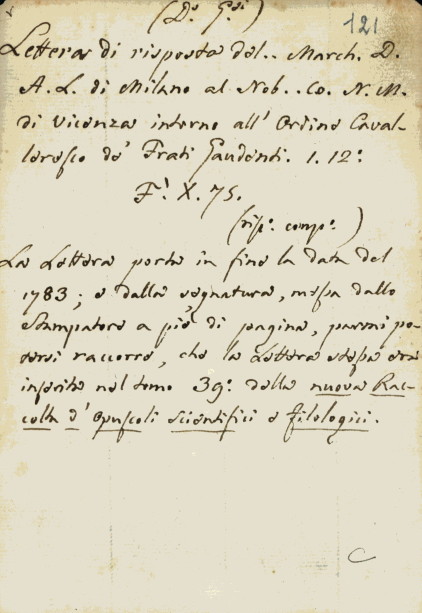 (D. G.si)
121
Lettera di risposta del.. March. D.
A. L. di Milano al Nob.. Co. N. M.
di Vicenza intorno all' Ordine Caval-
leresco de' Frati Gaudenti. 1. 12°.
F. X. 75.
(risp. comp.)
La Lettera porta in fine la data del
1783; e dalla segnatura, messa dallo
Stampatore a piè di pagina, parmi po-
tersi raccorre, che la Lettera stessa era
inserita nel tomo 39° della nuova Rac-
colta d'Opuscoli scientifici e filologici.
C